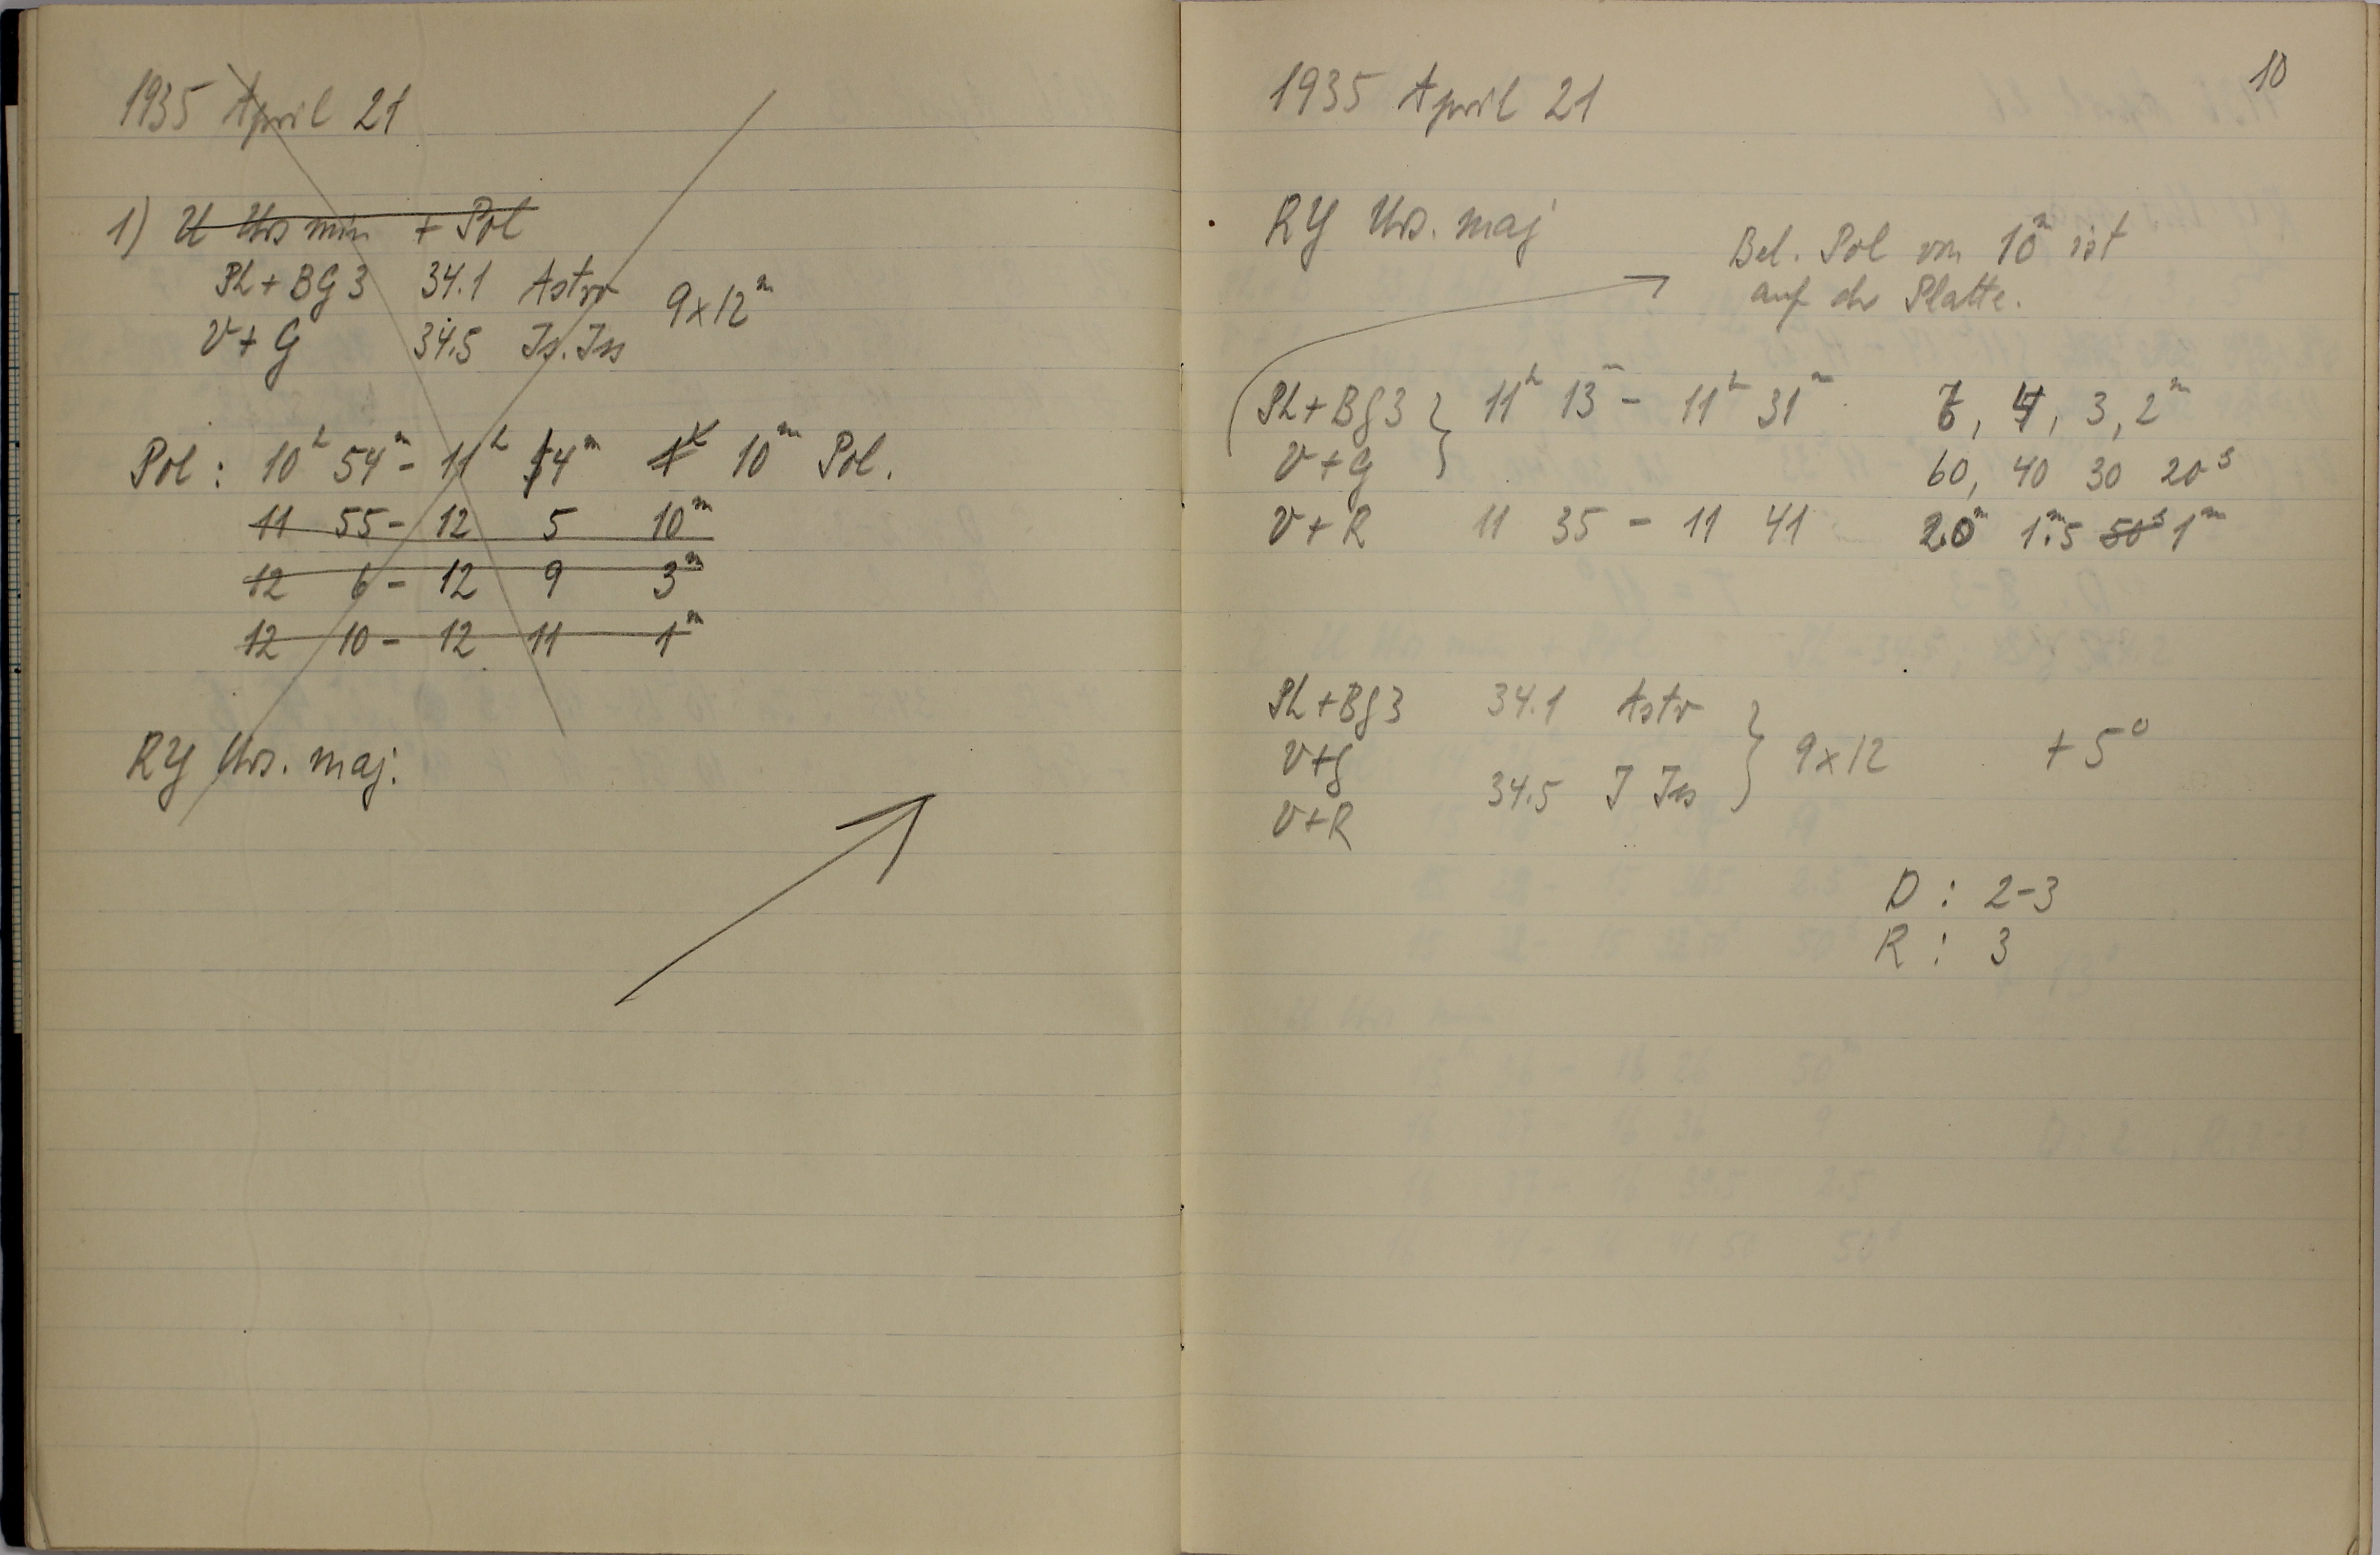 1935 April 21
1) U Urs min + Pol
Ph + BG 3 34.1 Astro
9x12ᵐ
V + G 34.5 Is. Iss
Pol : 10ʰ 54ᵐ - 11ʰ 4ᵐ 10ᵐ Pol.
11 55 - 12 5 10ᵐ
12 6 - 12 9 3ᵐ
12 10 - 12 11 1ᵐ
RY Urs. maj.
10
1935 April 21
RY Urs. maj
Bel. Pol von 10ᵐ ist
auf der Platte.
Ph + Bg 3 } 11ʰ 13ᵐ - 11ʰ 31ᵐ , 4, 3, 2ᵐ
V + G 60, 40 30 20ˢ
V + R 11 35 - 11 41 2.0ᵐ 1ᵐ.5 50ˢ 1ᵐ
Ph + Bg 3 34.1 Astr
V + g } 9x12 + 5°
34.5 I Iss
V + R
D : 2-3
R : 3